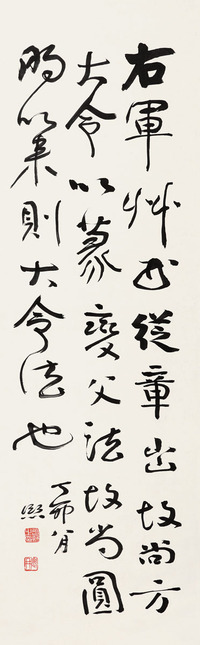 右軍艸書從章出故尚方
大令以篆變父法故尚圓
明以来則大令法也
丁卯八月
熙